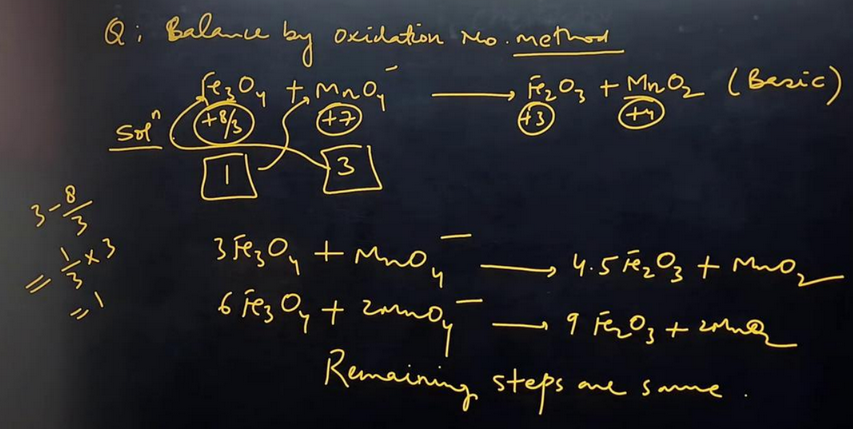 Q: Balance by oxidation No. method
Fe₃O₄ + MnO₄⁻ ⟶ Fe₂O₃ + MnO₂ (Basic)
Solⁿ +8/3 +7 +3 +4
1 3
3-8/3
= 1/3 × 3
= 1
3Fe₃O₄ + MnO₄⁻ ⟶ 4.5 Fe₂O₃ + MnO₂
6Fe₃O₄ + 2MnO₄⁻ ⟶ 9 Fe₂O₃ + 2MnO₂
Remaining steps are same.